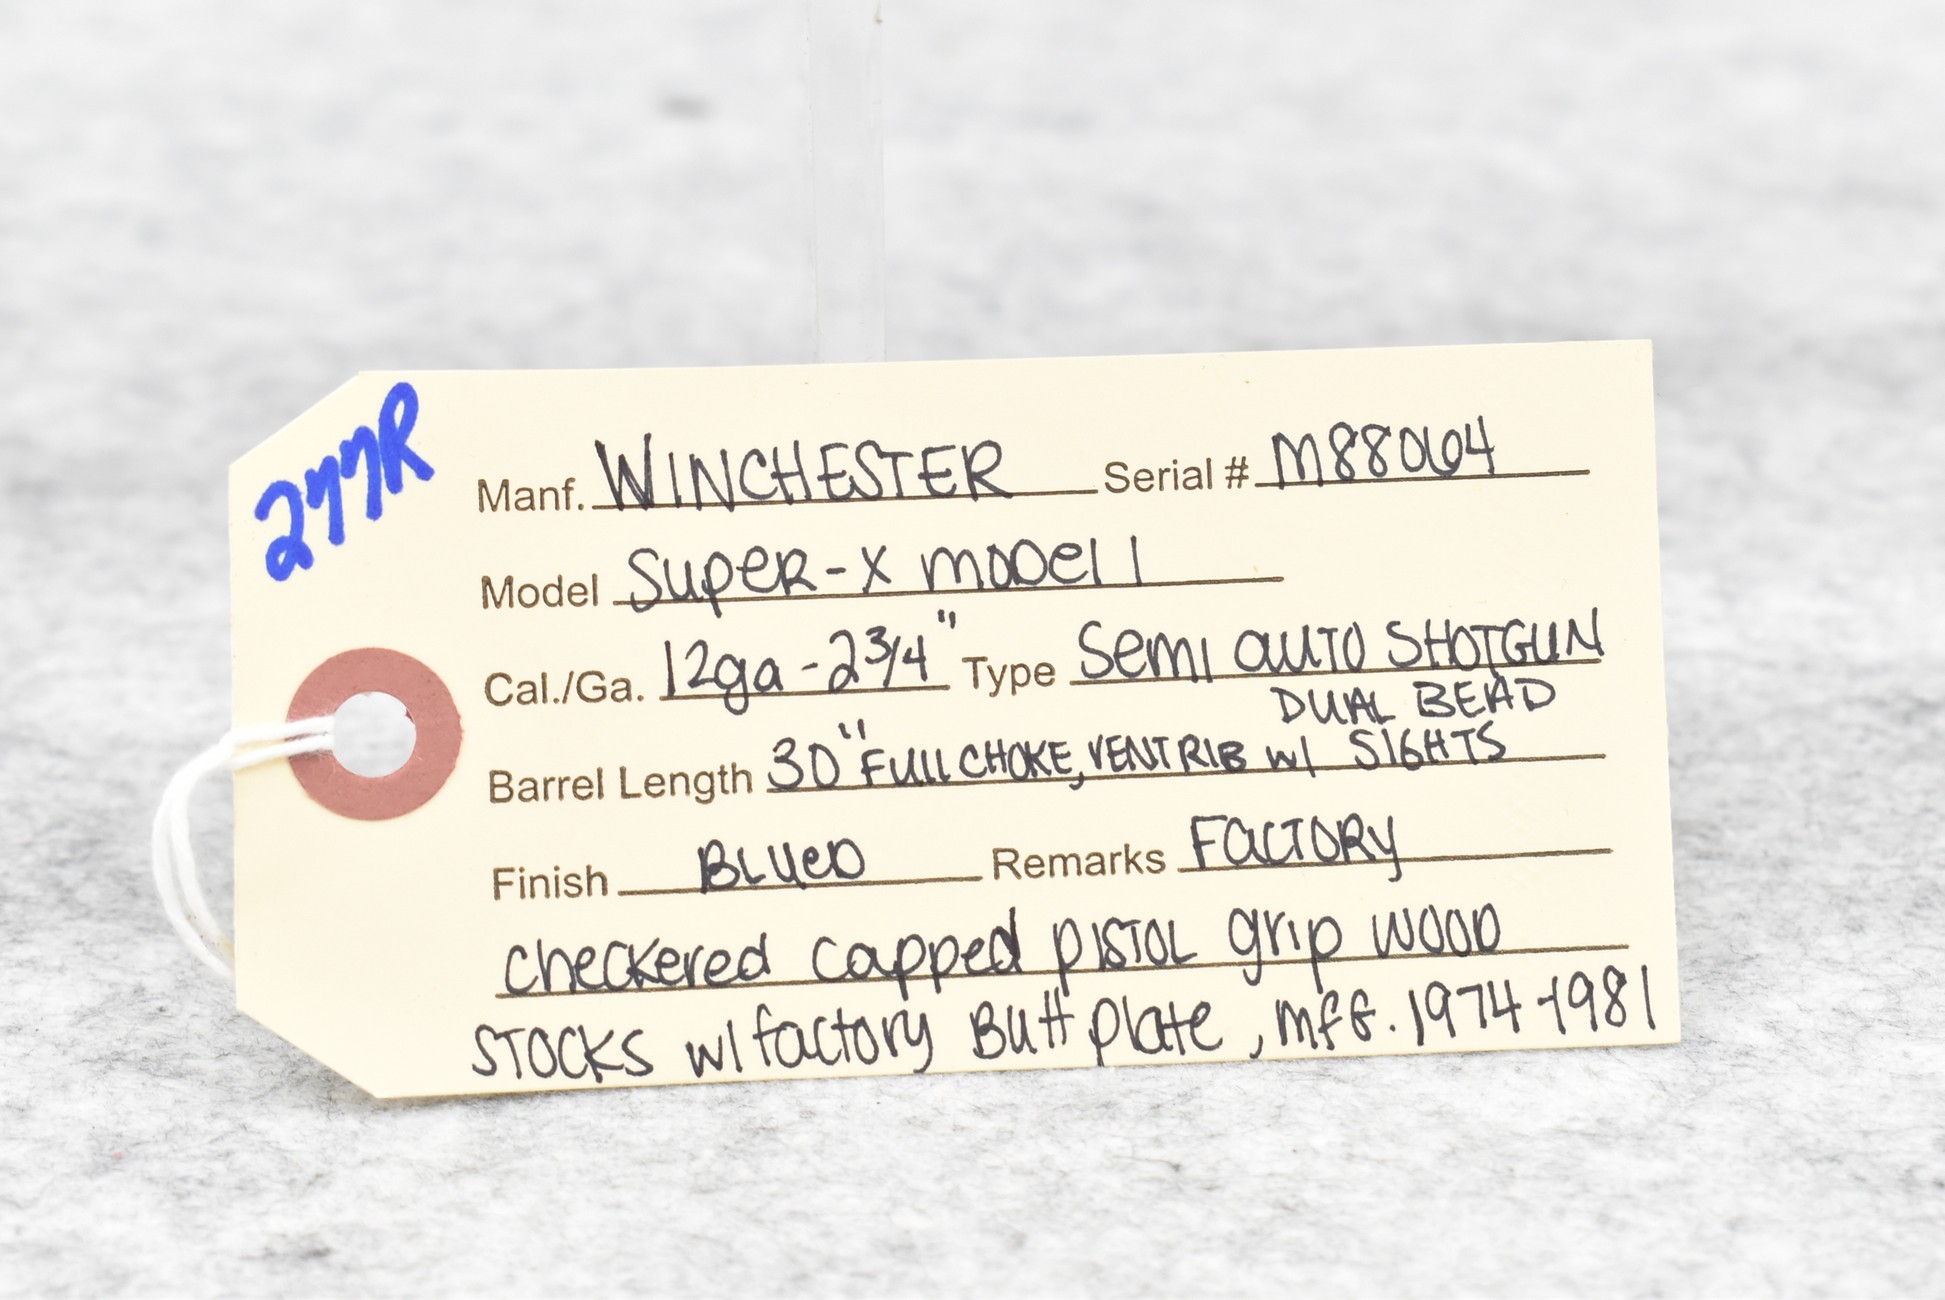 277R
Manf. WINCHESTER Serial # M88064
Model Super-X Model 1
Cal./Ga. 12ga - 2 3/4" Type Semi Auto SHOTGUN
DUAL BEAD
Barrel Length 30" FULL CHOKE, VENT RIB w/ SIGHTS
Finish BLUED Remarks FACTORY
checkered capped pistol grip WOOD
STOCKS w/ factory Butt plate, mfg. 1974-1981